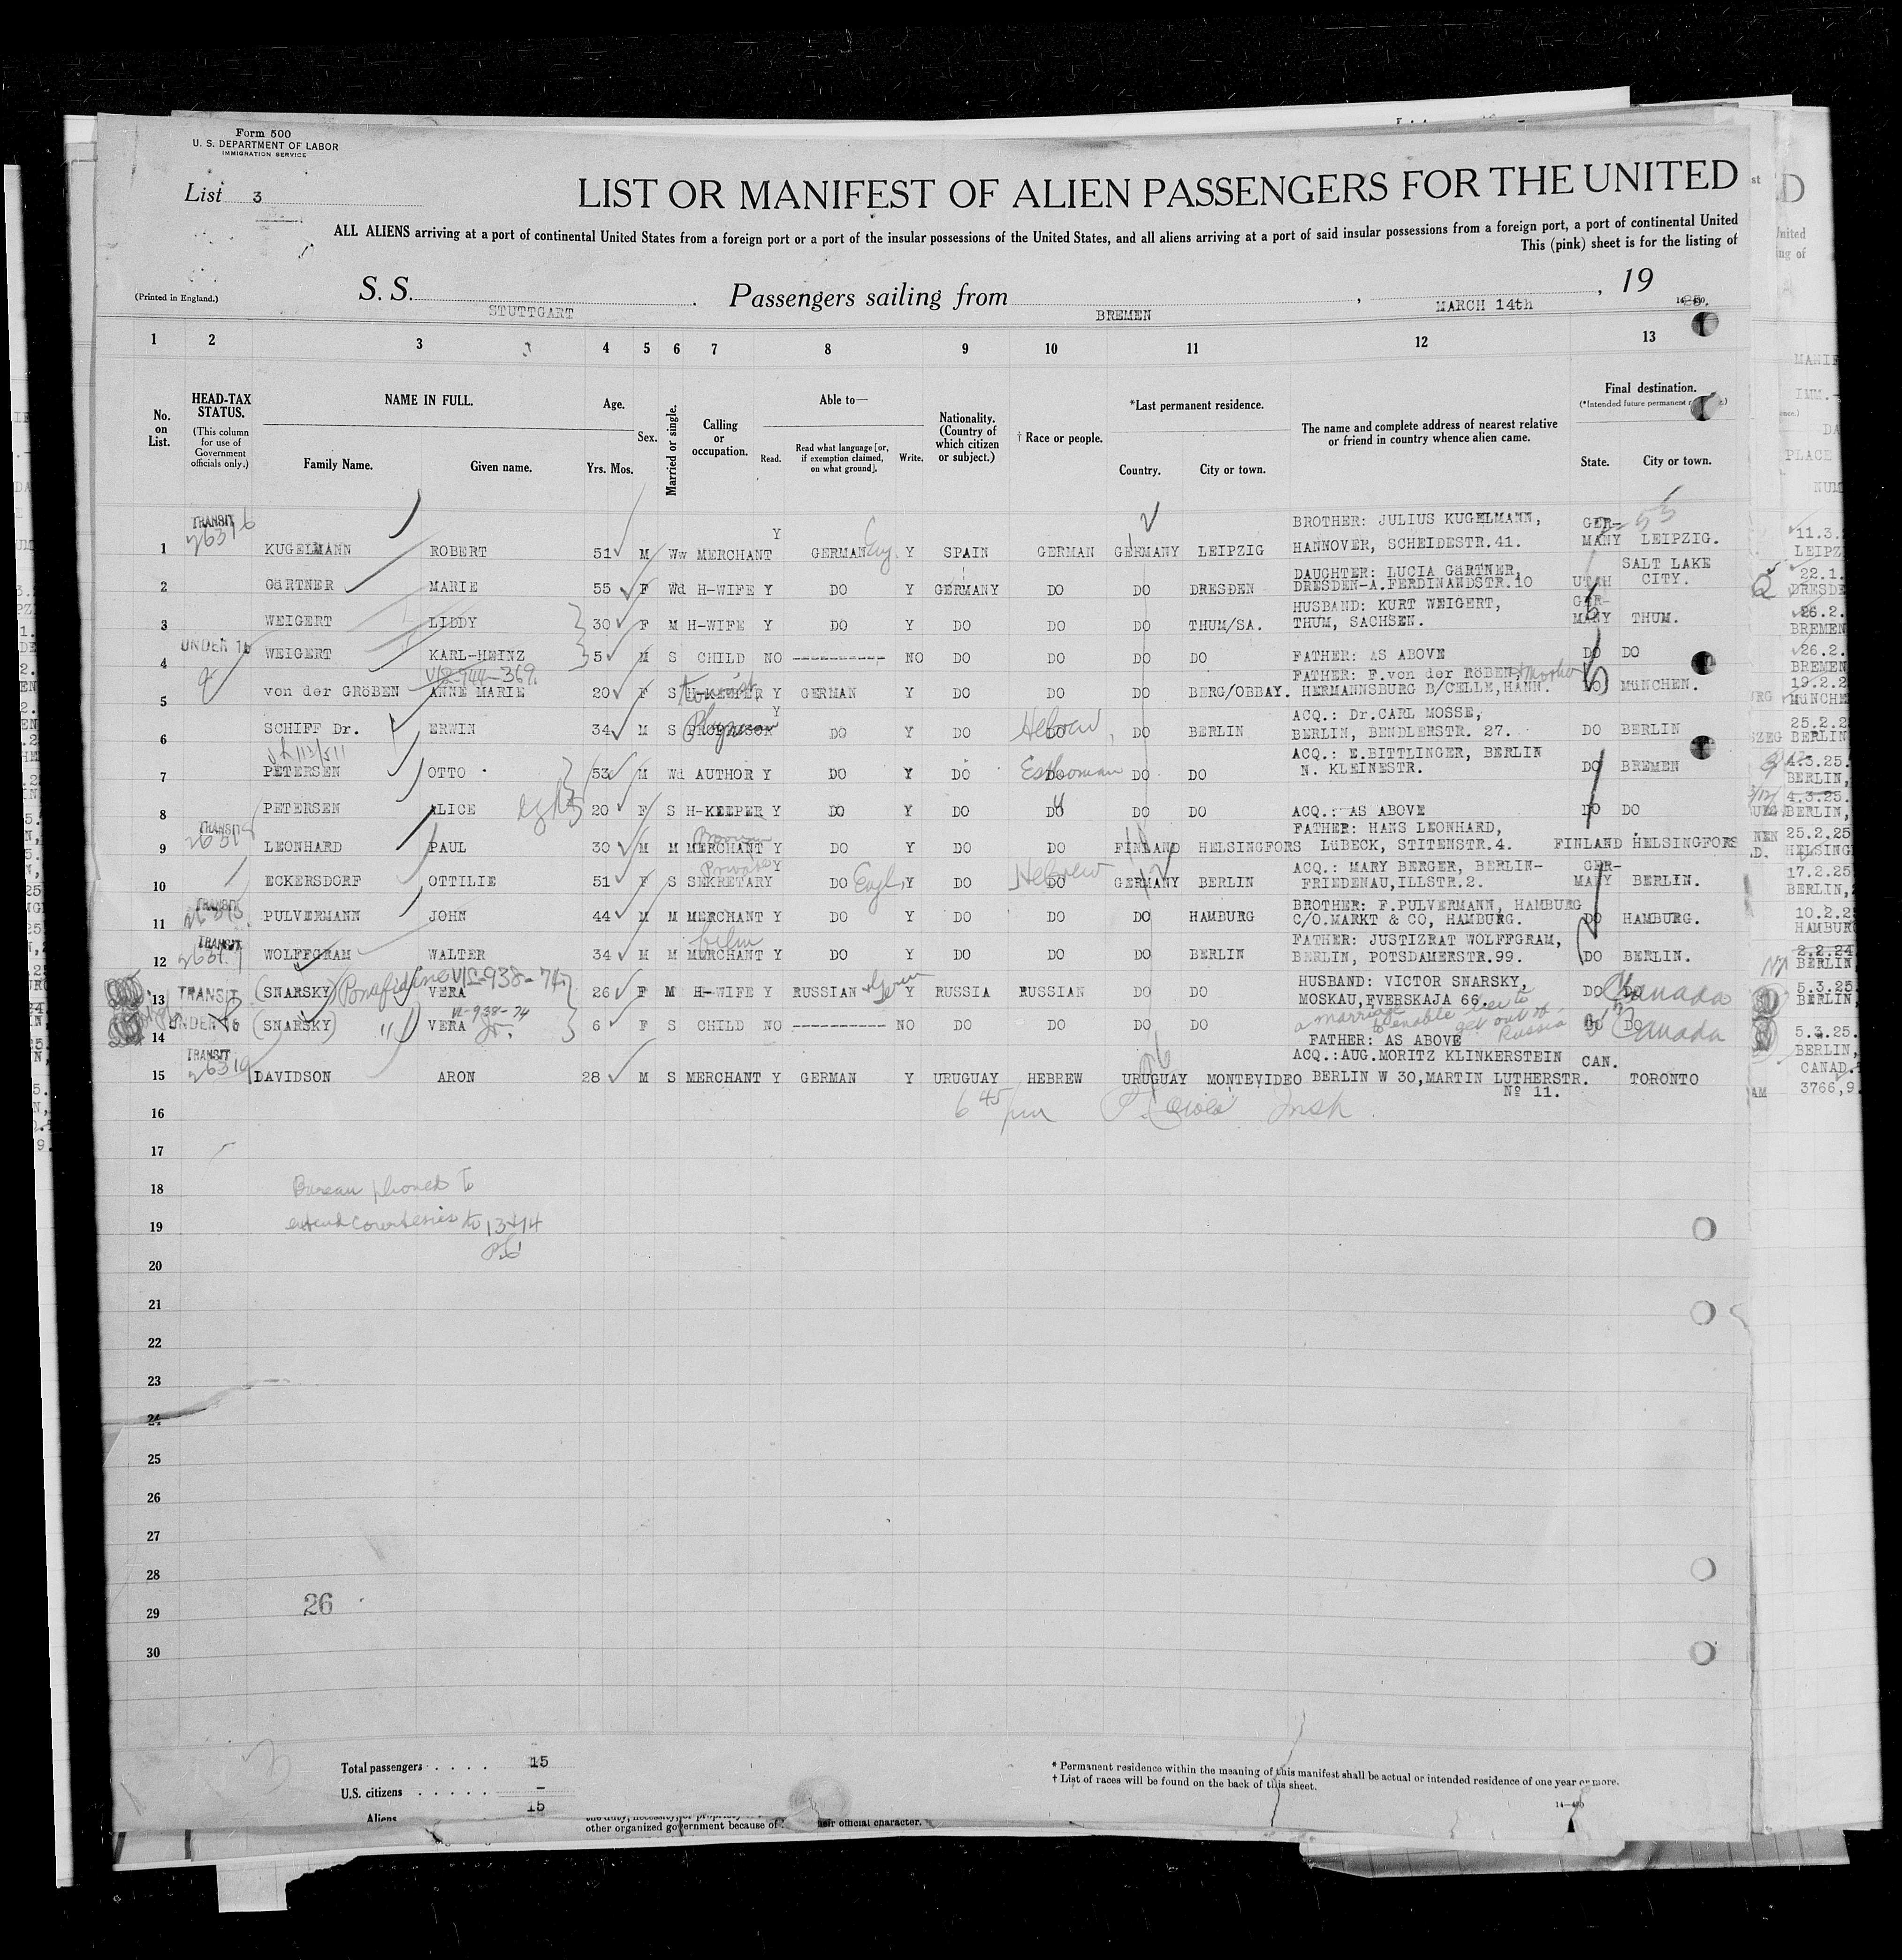 Form 500
U. S. DEPARTMENT OF LABOR
IMMIGRATION SERVICE
List 3
LIST OR MANIFEST OF ALIEN PASSENGERS FOR THE UNITED
ALL ALIENS arriving at a port of continental United States from a foreign port or a port of the insular possessions of the United States, and all aliens arriving at a port of said insular possessions from a foreign port, a port of continental United
This (pink) sheet is for the listing of
(Printed in England.)
S. S. STUTTGART . Passengers sailing from BREMEN , MARCH 14th , 19
1 2 3 4 5 6 7 8 9 10 11 12 13
No. on List.
HEAD-TAX STATUS.
(This column for use of Government officials only.)
NAME IN FULL.
Family Name. Given name.
Age.
Yrs. Mos.
Sex.
Married or single.
Calling or occupation.
Able to—
Read. Read what language [or, if exemption claimed, on what ground]. Write.
Nationality. (Country of which citizen or subject.)
† Race or people.
*Last permanent residence.
Country. City or town.
The name and complete address of nearest relative or friend in country whence alien came.
Final destination.
(*Intended future permanent
State. City or town.
TRANSIT
1 KUGELMANN ROBERT 51 M Ww MERCHANT Y GERMAN Eng. Y SPAIN GERMAN GERMANY LEIPZIG BROTHER: JULIUS KUGELMANN, HANNOVER, SCHEIDESTR.41. GER-MANY LEIPZIG.
2 GäRTNER MARIE 55 F Wd H-WIFE Y DO Y GERMANY DO DO DRESDEN DAUGHTER: LUCIA GäRTNER, DRESDEN-A.FERDINANDSTR.10 UTAH SALT LAKE CITY.
3 WEIGERT LIDDY 30 F M H-WIFE Y DO Y DO DO DO THUM/SA. HUSBAND: KURT WEIGERT, THUM, SACHSEN. GER-MANY THUM.
UNDER 16
4 WEIGERT KARL-HEINZ 5 M S CHILD NO ----------- NO DO DO DO DO FATHER: AS ABOVE DO DO
5 von der GRöBEN ANNE MARIE 20 F S H-KEEPER Y GERMAN Y DO DO DO BERG/OBBAY. FATHER: F.von der RöBEN, HERMANNSBURG B/CELLE,HANN. DO MüNCHEN.
6 SCHIFF Dr. ERWIN 34 M S Y DO Y DO DO Hebrew DO BERLIN ACQ.: Dr.CARL MOSSE, BERLIN, BENDLERSTR. 27. DO BERLIN
7 PETERSEN OTTO 53 M Wd AUTHOR Y DO Y DO DO DO DO ACQ.: E.BITTLINGER, BERLIN N. KLEINESTR. DO BREMEN
8 PETERSEN ALICE 20 F S H-KEEPER Y DO Y DO DO DO DO ACQ.: AS ABOVE DO DO
TRANSIT
9 LEONHARD PAUL 30 M M MERCHANT Y DO Y DO DO FINLAND HELSINGFORS FATHER: HANS LEONHARD, LüBECK, STITENSTR.4. FINLAND HELSINGFORS
10 ECKERSDORF OTTILIE 51 F S Private SEKRETARY Y DO Engl. Y DO DO Hebrew GERMANY BERLIN ACQ.: MARY BERGER, BERLIN-FRIEDENAU,ILLSTR.2. GER-MANY BERLIN.
TRANSIT
11 PULVERMANN JOHN 44 M M MERCHANT Y DO Y DO DO DO HAMBURG BROTHER: F.PULVERMANN, HAMBURG C/O.MARKT & CO, HAMBURG. DO HAMBURG.
TRANSIT
12 WOLFFGRAM WALTER 34 M M film MERCHANT Y DO Y DO DO DO BERLIN FATHER: JUSTIZRAT WOLFFGRAM, BERLIN, POTSDAMERSTR.99. DO BERLIN.
TRANSIT
13 (SNARSKY) VERA VIS-938-74 26 F M H-WIFE Y RUSSIAN Y RUSSIA RUSSIAN DO DO HUSBAND: VICTOR SNARSKY, MOSKAU, DO DO Canada
a marriage to enable her to get out of Russia
UNDER 16
14 (SNARSKY) " VERA Jr. VI-938-74 6 F S CHILD NO ----------- NO DO DO DO DO FATHER: AS ABOVE DO DO Canada
TRANSIT
15 DAVIDSON ARON 28 M S MERCHANT Y GERMAN Y URUGUAY HEBREW URUGUAY MONTEVIDEO ACQ.:AUG.MORITZ KLINKERSTEIN BERLIN W 30,MARTIN LUTHERSTR. Nº 11. CAN. TORONTO
16 6 45 pm Insp.
17
18 Bureau phoned to
19 extend courtesies to 13+14
20
21
22
23
24
25
26
27
28
29
30
26
Total passengers . . . . . 15
U.S. citizens . . . . . –
Aliens 15
other organized government because of their official character.
* Permanent residence within the meaning of this manifest shall be actual or intended residence of one year or more.
† List of races will be found on the back of this sheet.